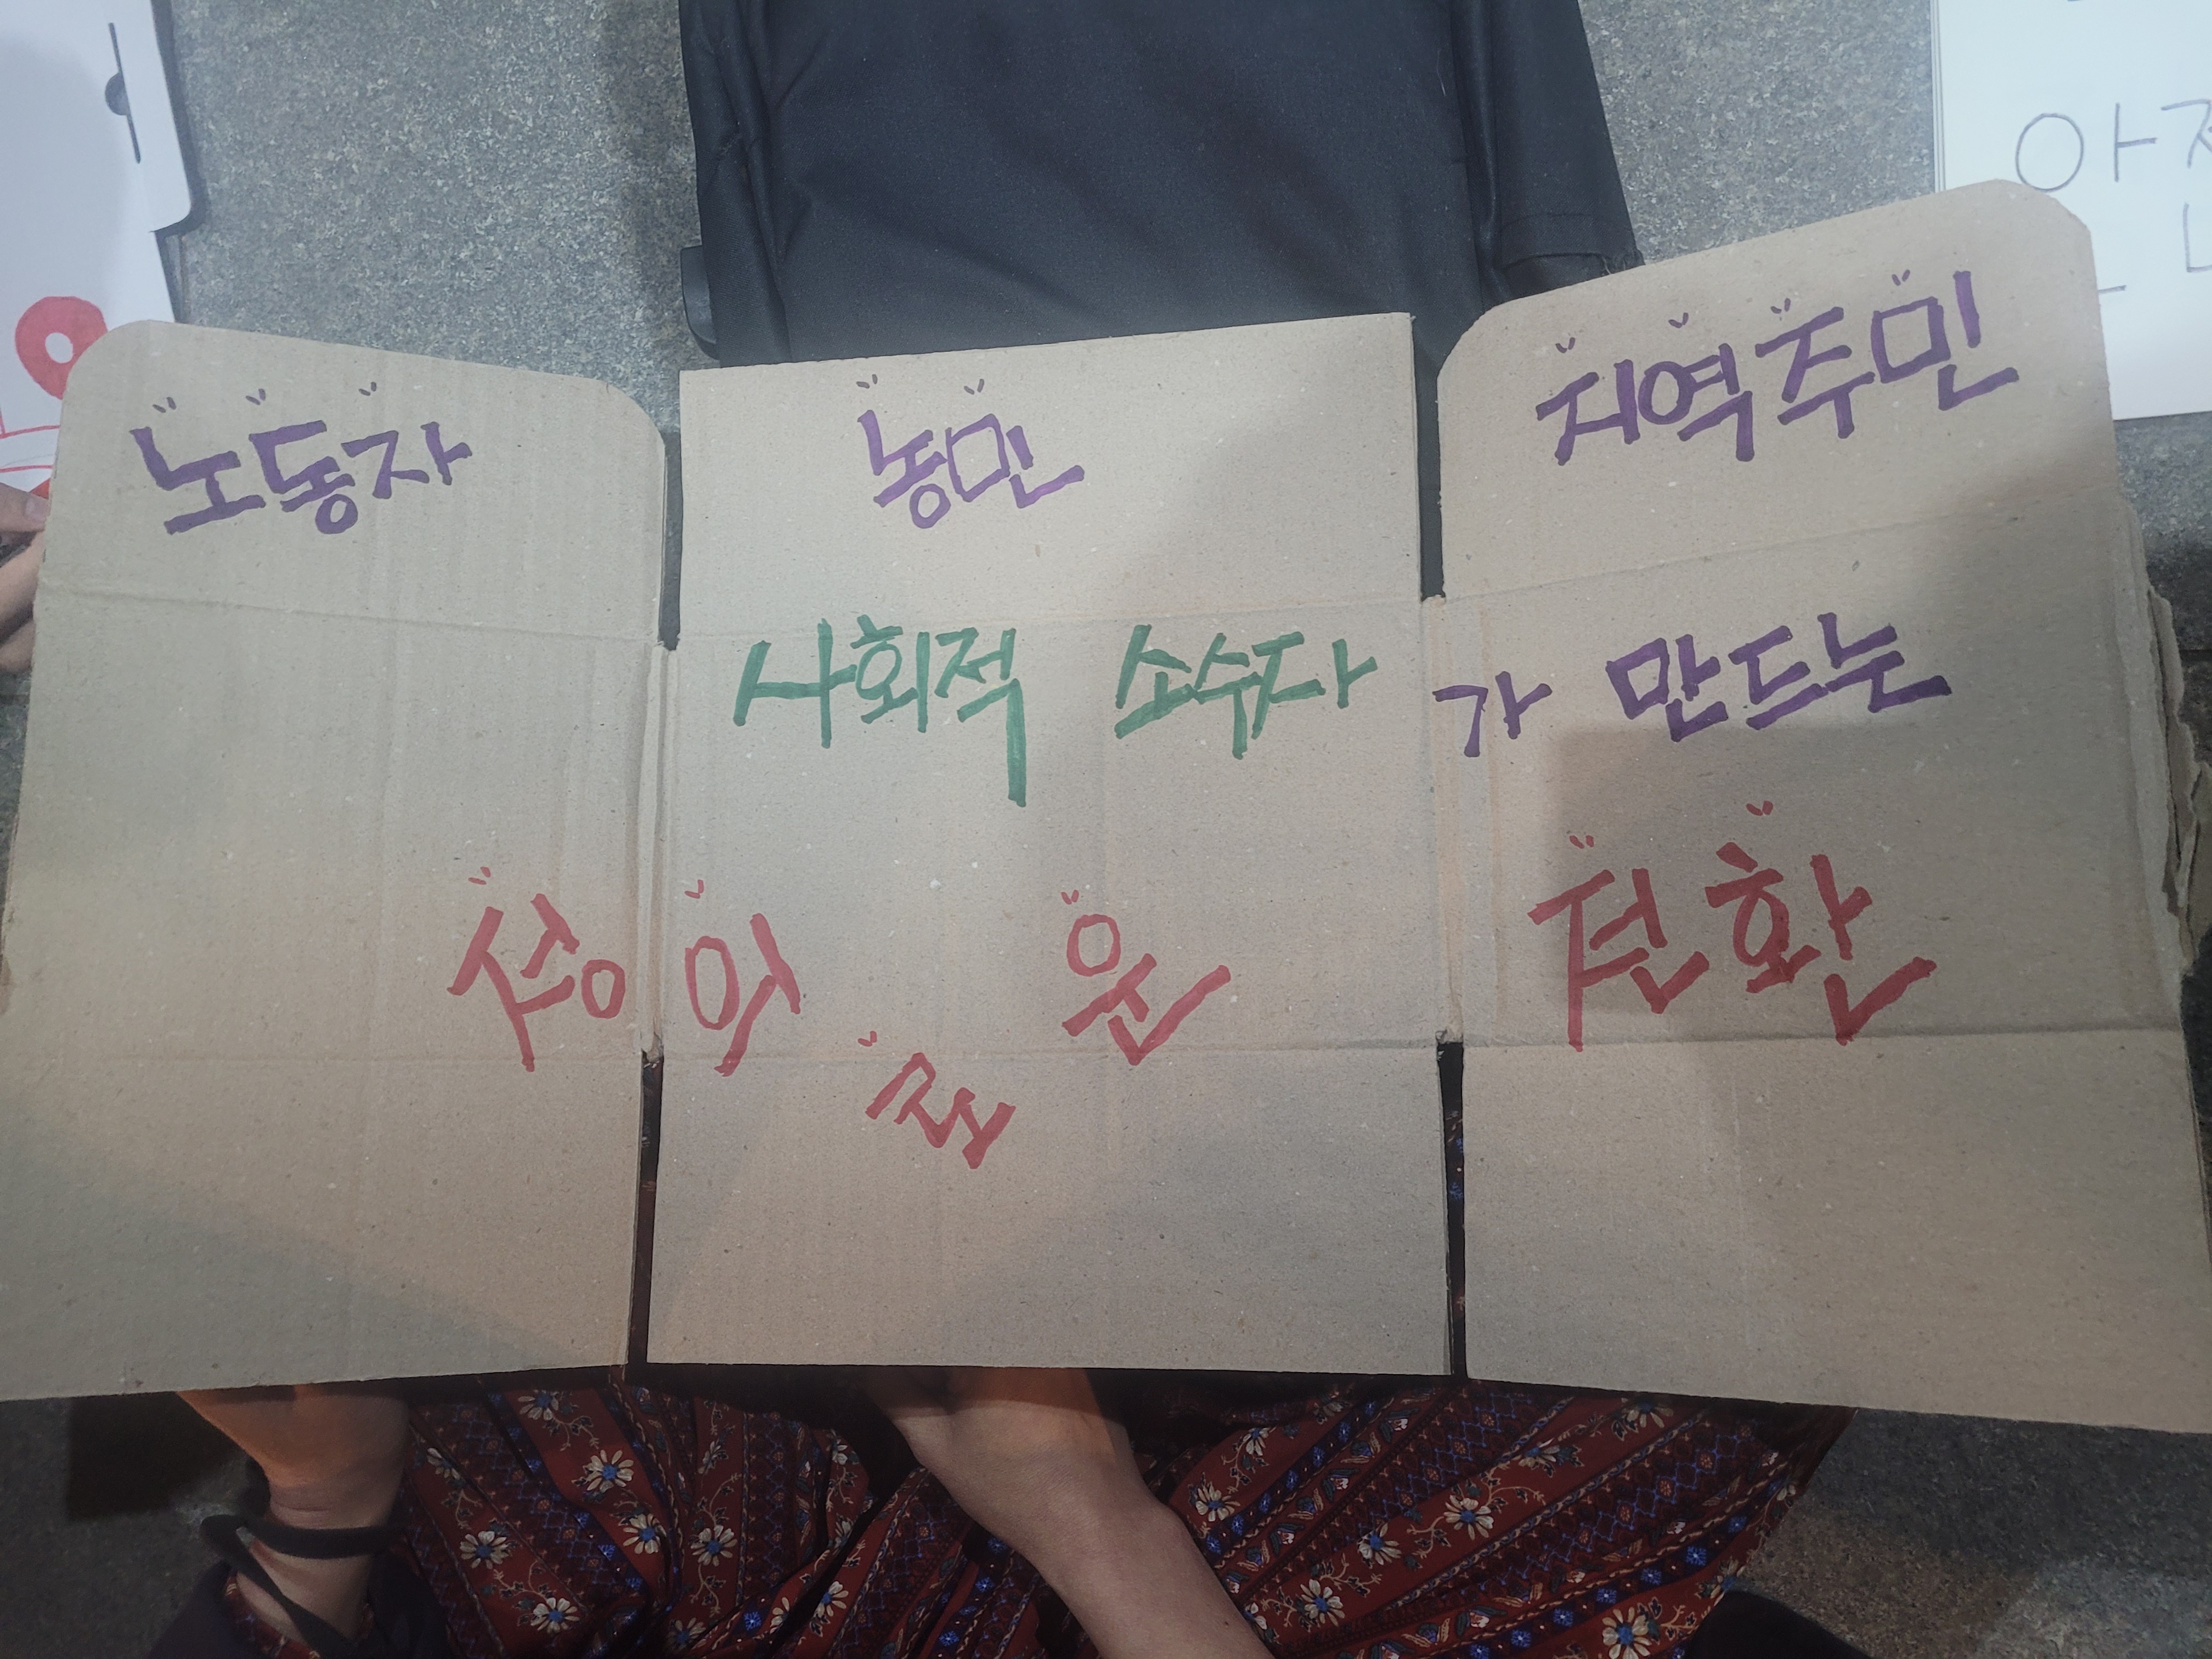 노동자 농민 지역주민
사회적 소수자가 만드는
정의로운 전환